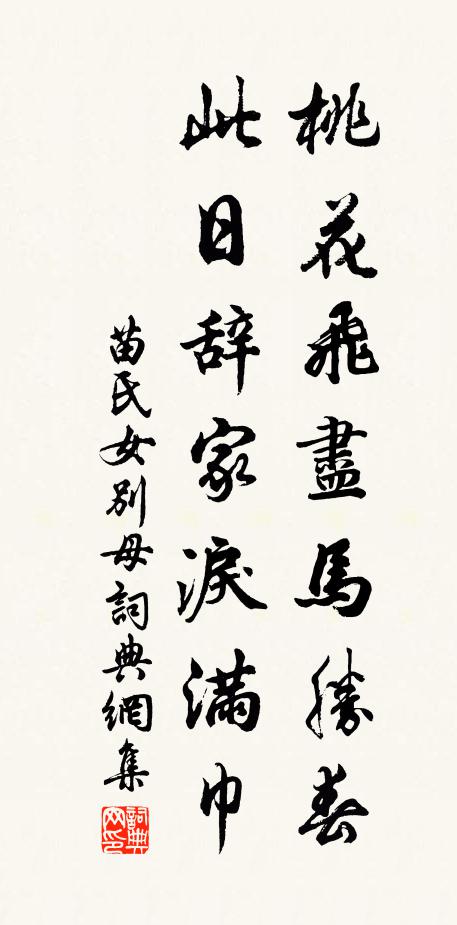 桃花飛盡馬勝春
此日辞家淚滿巾
苗氏女別母詞典網集
詞典网印